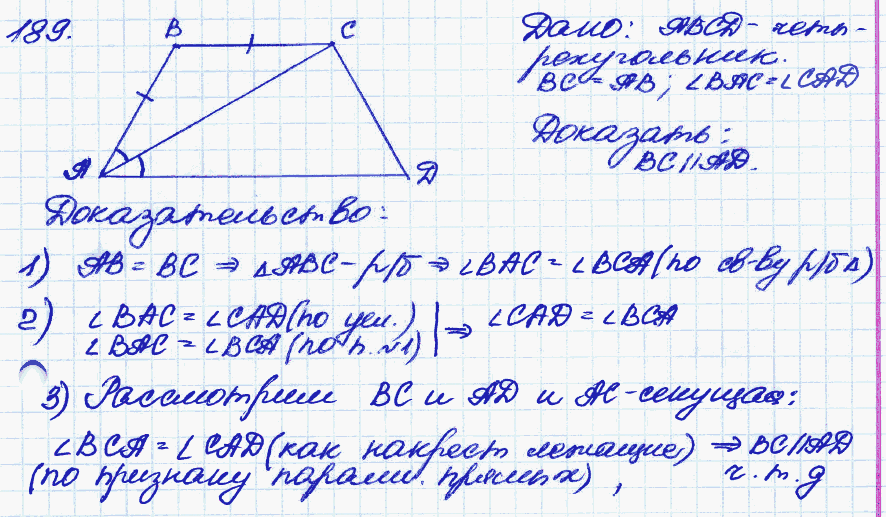 189.
B C
A D
Дано: ABCD - четы-
рехугольник.
BC = AB; ∠BAC = ∠CAD
Доказать:
BC || AD.
Доказательство:
1) AB = BC ⇒ ∆ABC - р/б ⇒ ∠BAC = ∠BCA (по св-ву р/б ∆)
2) ∠BAC = ∠CAD (по усл.) | ⇒ ∠CAD = ∠BCA
∠BAC = ∠BCA (по п. №1)
3) Рассмотрим BC и AD и AC - секущая:
∠BCA = ∠CAD (как накрест лежащие) ⇒ BC || AD
(по признаку паралл. прямых), ч.т.д